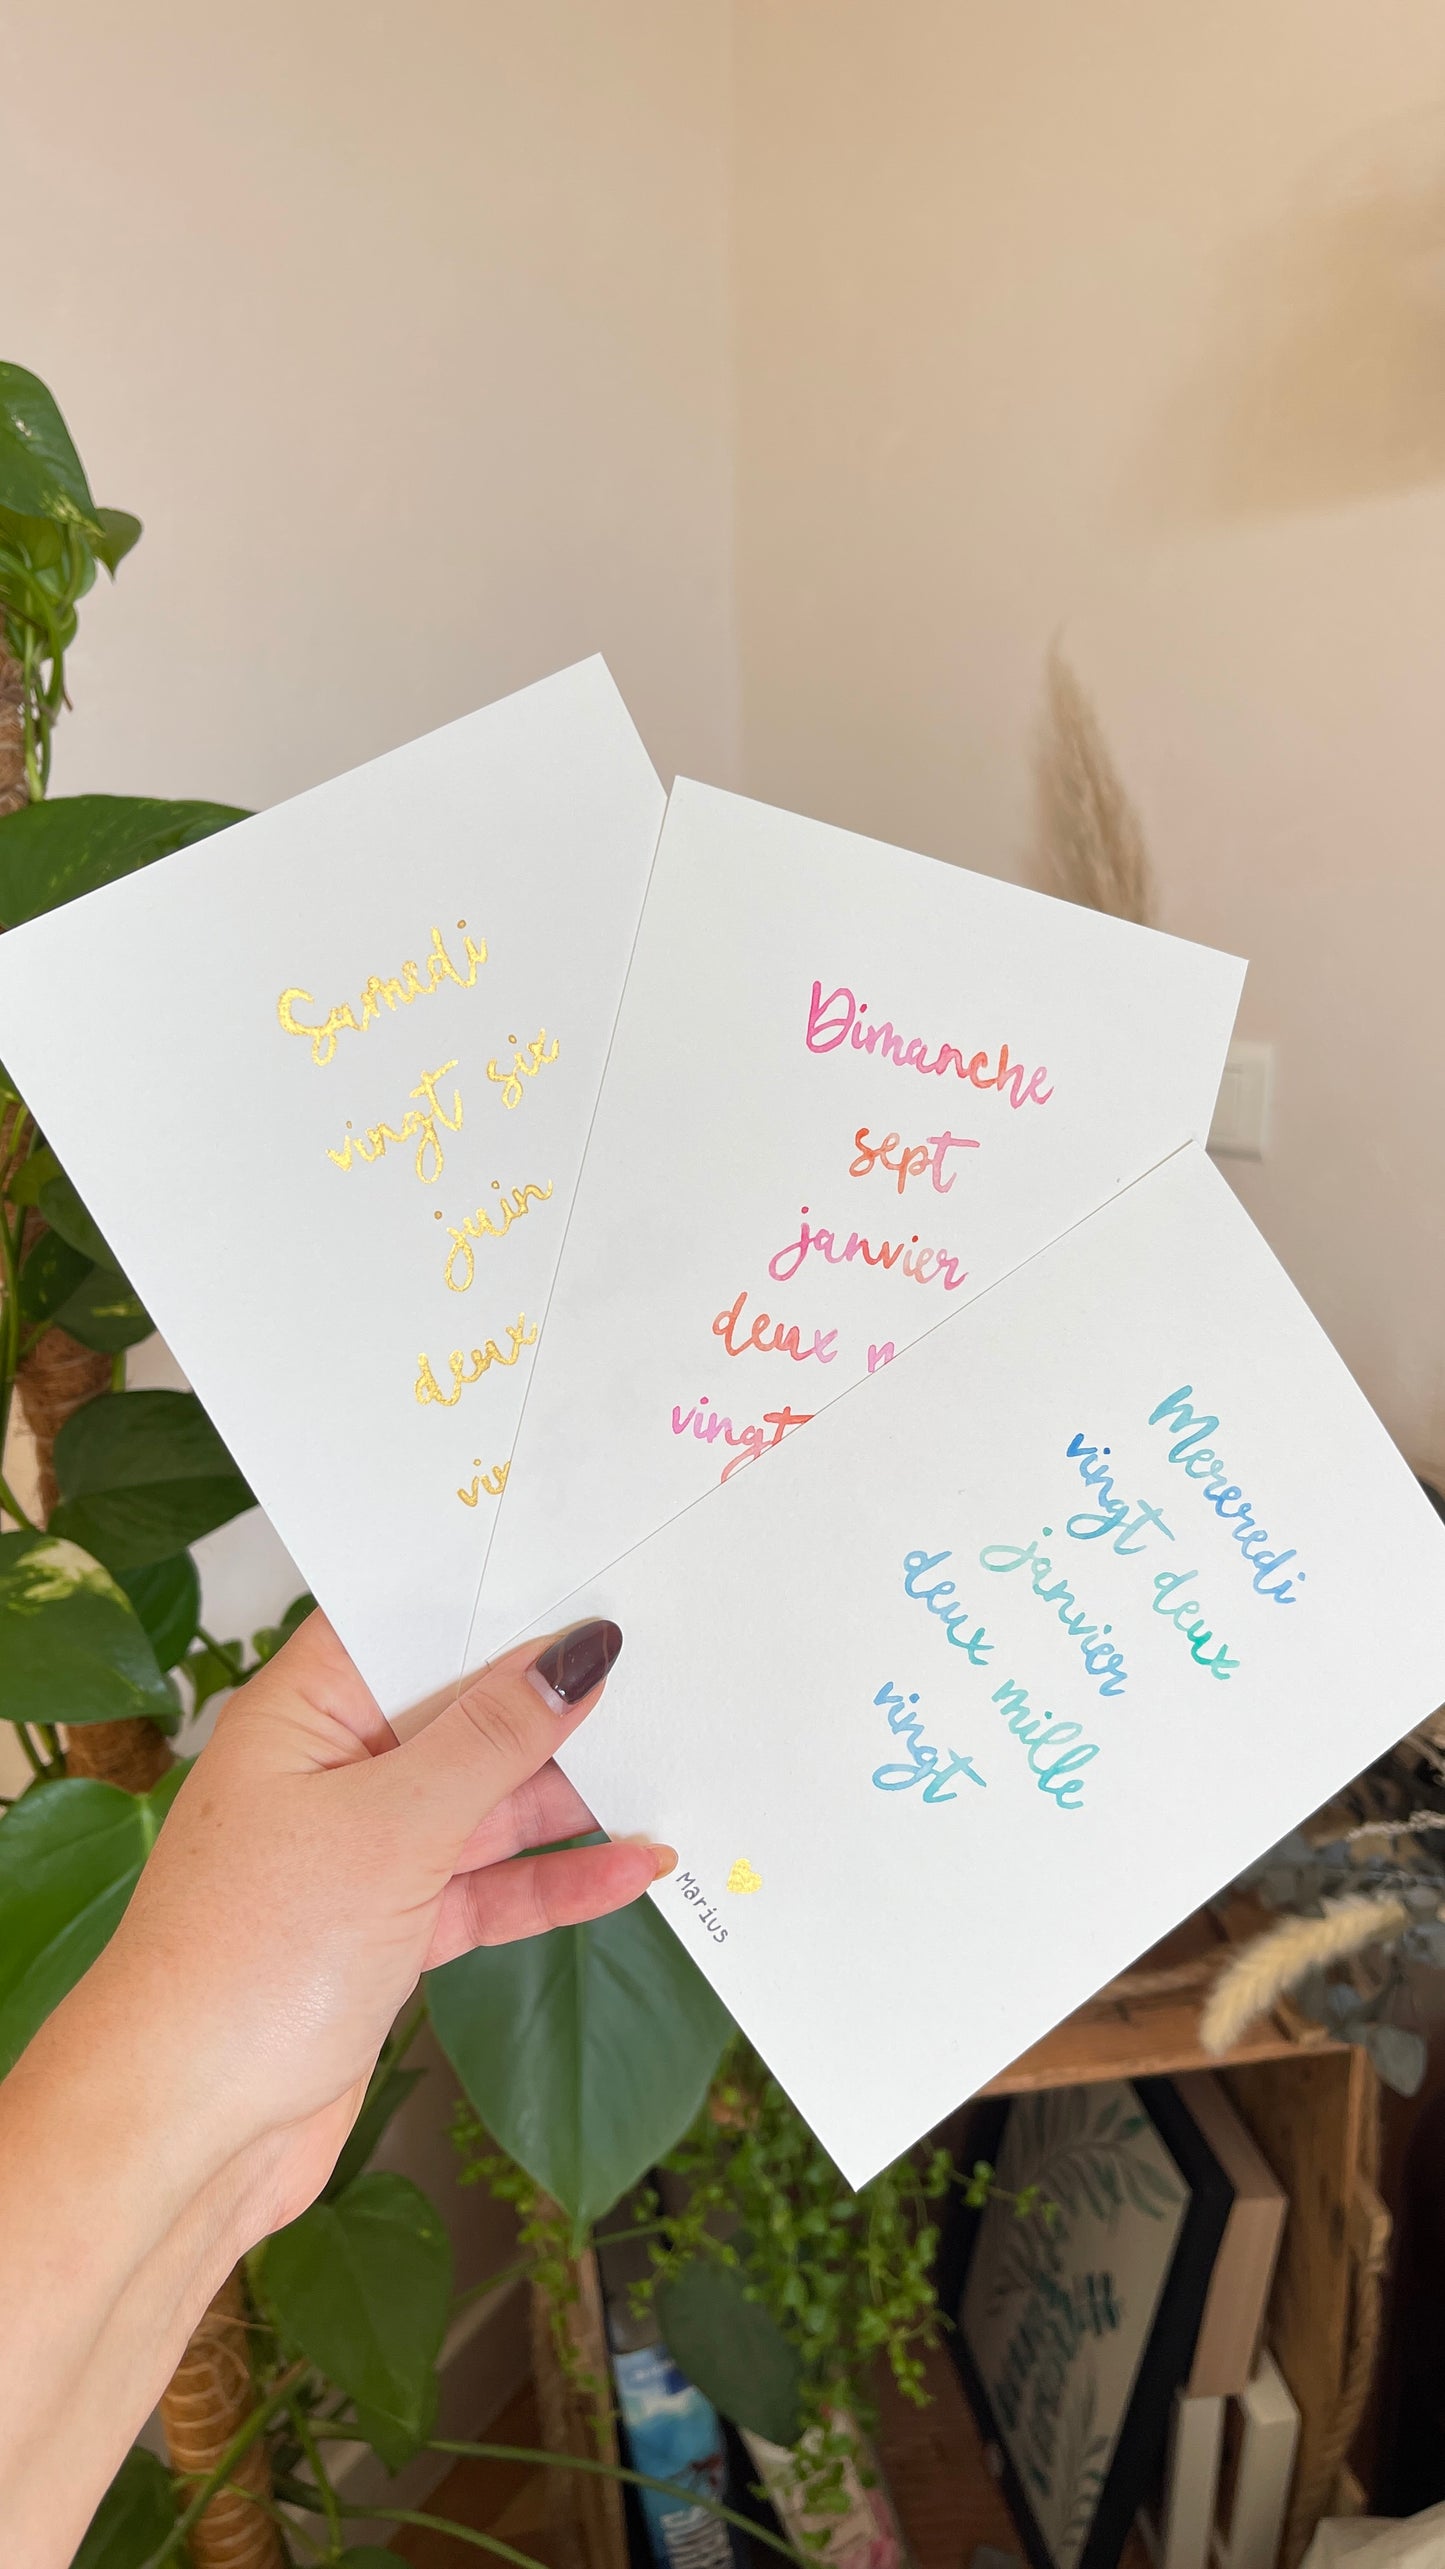 Samedi
vingt six
juin
deux
Dimanche
sept
janvier
deux
vingt
Mercredi
vingt deux
janvier
deux mille
vingt
Marius